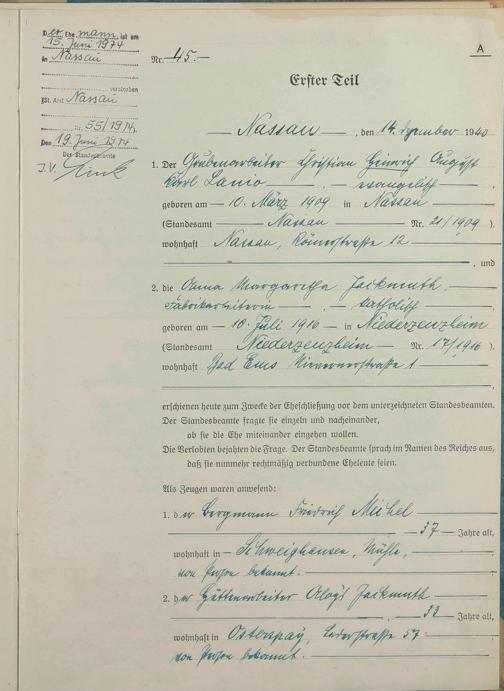 Der Ehemann ist am
15. Juni 1974
in Nassau
verstorben
Nassau
Nr. 55/1974.
Den 19. Juni 1974
Der Standesbeamte
J.V.
A
Nr. 45.
Erster Teil
Nassau, den 14. Dezember 1940
1. Der Grubenarbeiter Christian Heinrich August
Karl Lanio, evangelisch
geboren am 10. März 1909 in Nassau
(Standesamt Nassau Nr. 21/1909).
wohnhaft Nassau, Römerstraße 12
, und
2. die Anna Margaretha Jackmuth,
Fabrikarbeiterin, katholisch
geboren am 10. Juli 1916 in Niederzeuzheim
(Standesamt Niederzeuzheim Nr. 17/1916).
wohnhaft Bad Ems 1
erschienen heute zum Zwecke der Eheschließung vor dem unterzeichneten Standesbeamten.
Der Standesbeamte fragte sie einzeln und nacheinander,
ob sie die Ehe miteinander eingehen wollen.
Die Verlobten bejahten die Frage. Der Standesbeamte sprach im Namen des Reiches aus,
daß sie nunmehr rechtmäßig verbundene Eheleute seien.
Als Zeugen waren anwesend:
1. der Bergmann Friedrich Michel
37 Jahre alt,
wohnhaft in Schweighausen, Mühle,
von Person bekannt.
2. der Hüttenarbeiter Aloys Jackmuth
, 33 Jahre alt,
wohnhaft in Osterspay, 57
von Person bekannt.